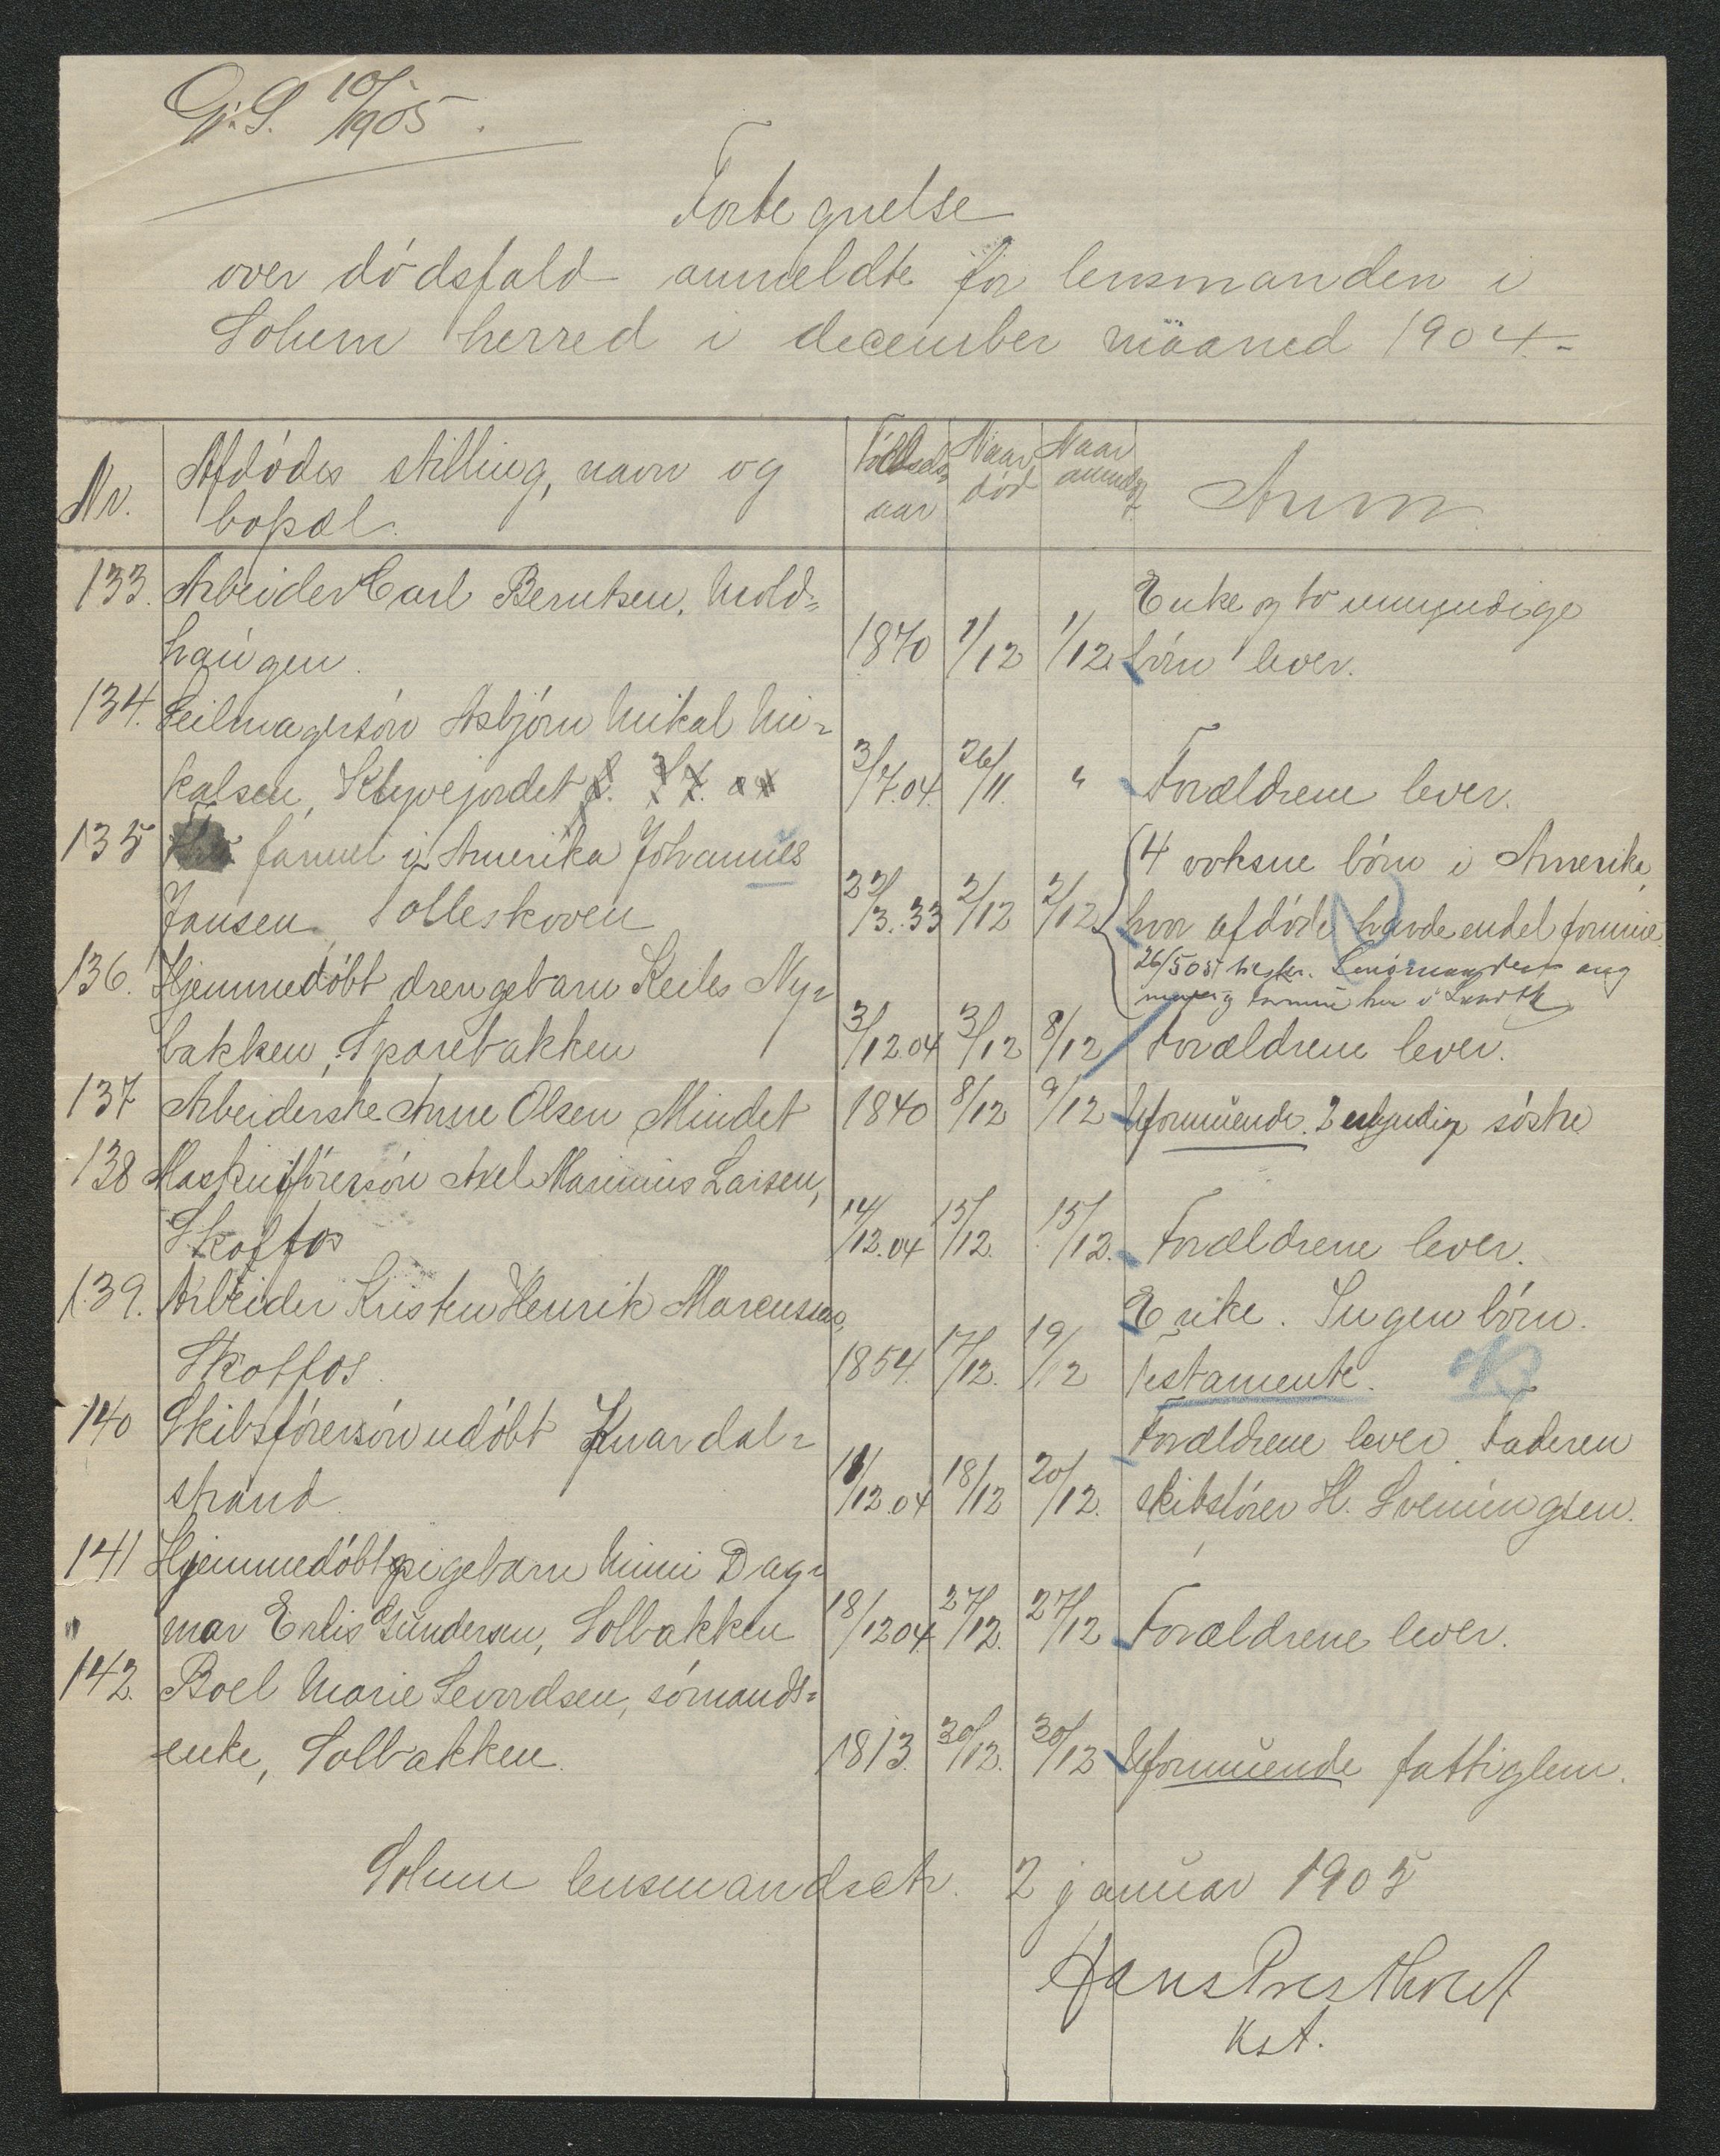 G.S. 10/1905.
Fortegnelse
over dødsfald anmeldte for lensmanden i
Solum herred i december måaned 1904.-
Nr. Afdødes stilling, navn og bopæl. Fødsels aar Naar død Naar anmeldt Anm.
133. Arbeider Carl Berntsen, Mold= Enke og to umyndige
haugen. 1870 1/12 1/12 børn lever.
134. Seilmagersøn Asbjørn Mikal Mi=
kalsen, Klyvejordet 3/7.04. 26/11. " Forældrene lever.
135 farmer i Amerika Johannes 4 voksne børn i Amerika,
Jansen, Solleskoven 22/3.33 2/12 2/12 hvor afdøde havde endel formue
26/5 05
136. Hjemmedøbt drengebarn Keiles Ny=
bakken, Sparebakken 3/12.04 3/12 8/12 Forældrene lever.
137 Arbeiderske Anne Olsen Mindet 1840 8/12 9/12 Uformuende. 2 myndige søstre
138 Maskinførersøn Axel Marinius Larsen,
Skotfos 14/12.04 15/12. 15/12. Forældrene lever.
139. Arbeider Kristen Henrik Marensen, Enke. Ingen børn.
Skotfos. 1854. 17/12. 19/12 testamente.
140 Skibsførersøn udøbt Knardal= Forældrene lever. Faderen
strand. 11/12.04 18/12 20/12. skibsfører H. Sveningsen.
141 Hjemmedøbt pigebarn Mimi Dag=
mar Erlis Gundersen, Solbakken 18/12 04. 27/12. 27/12 Forældrene lever.
142. Boel Marie Sevordsen, sømands=
enke, Solbakken. 1813. 30/12. 30/12 Uformuende fattiglem.
Solum lensmandsktr. 2 januar 1905
Hans Presthold
Kst.